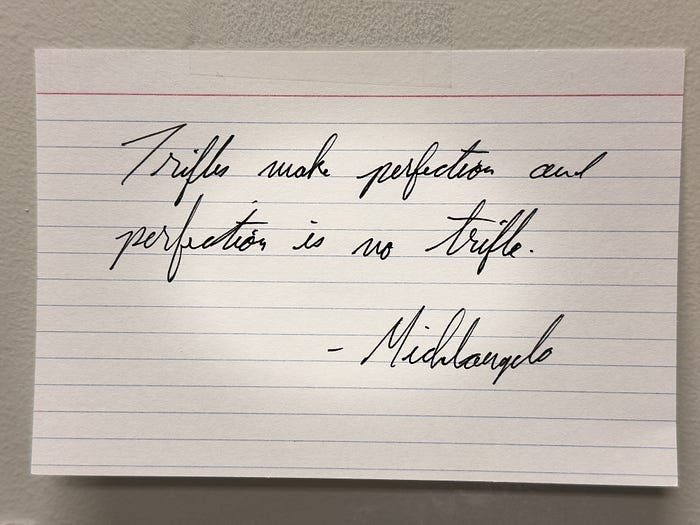 Trifles make perfection and
perfection is no trifle.
- Michelangelo